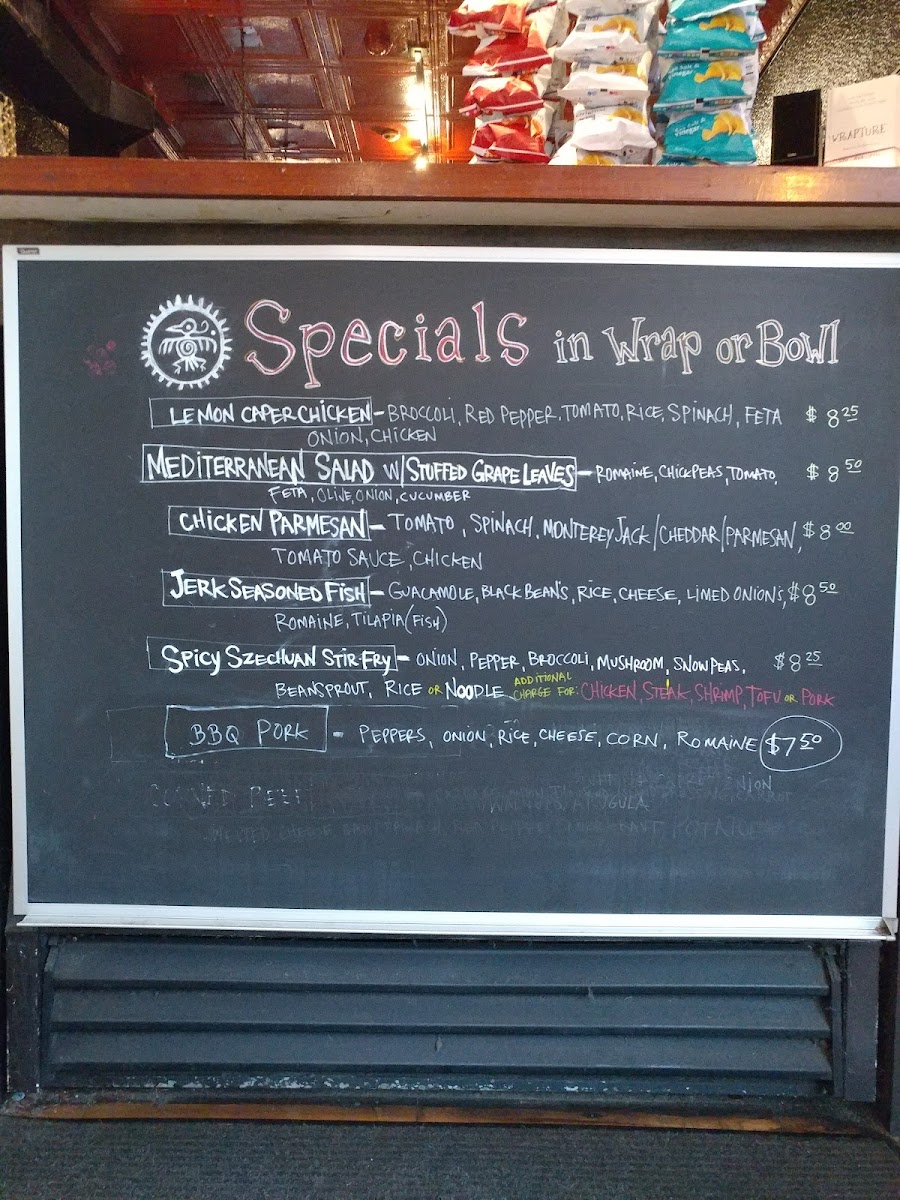 WRAPTURE
Salt & Vinegar
Specials in Wrap or Bowl
LEMON CAPER CHICKEN - BROCCOLI, RED PEPPER, TOMATO, RICE, SPINACH, FETA $8.25
ONION, CHICKEN
MEDITERRANEAN SALAD W/ STUFFED GRAPE LEAVES - ROMAINE, CHICKPEAS, TOMATO, $8.50
FETA, OLIVE, ONION, CUCUMBER
CHICKEN PARMESAN - TOMATO, SPINACH, MONTEREY JACK/CHEDDAR/PARMESAN, $8.00
TOMATO SAUCE, CHICKEN
JERK SEASONED FISH - GUACAMOLE, BLACK BEAN'S, RICE, CHEESE, LIMED ONION'S, $8.50
ROMAINE, TILAPIA (FISH)
SPICY SZECHUAN STIR-FRY - ONION, PEPPER, BROCCOLI, MUSHROOM, SNOW PEAS, $8.25
BEANSPROUT, RICE OR NOODLE ADDITIONAL CHARGE FOR: CHICKEN, STEAK, SHRIMP, TOFU OR PORK
BBQ PORK - PEPPERS, ONION, RICE, CHEESE, CORN, ROMAINE $7.50